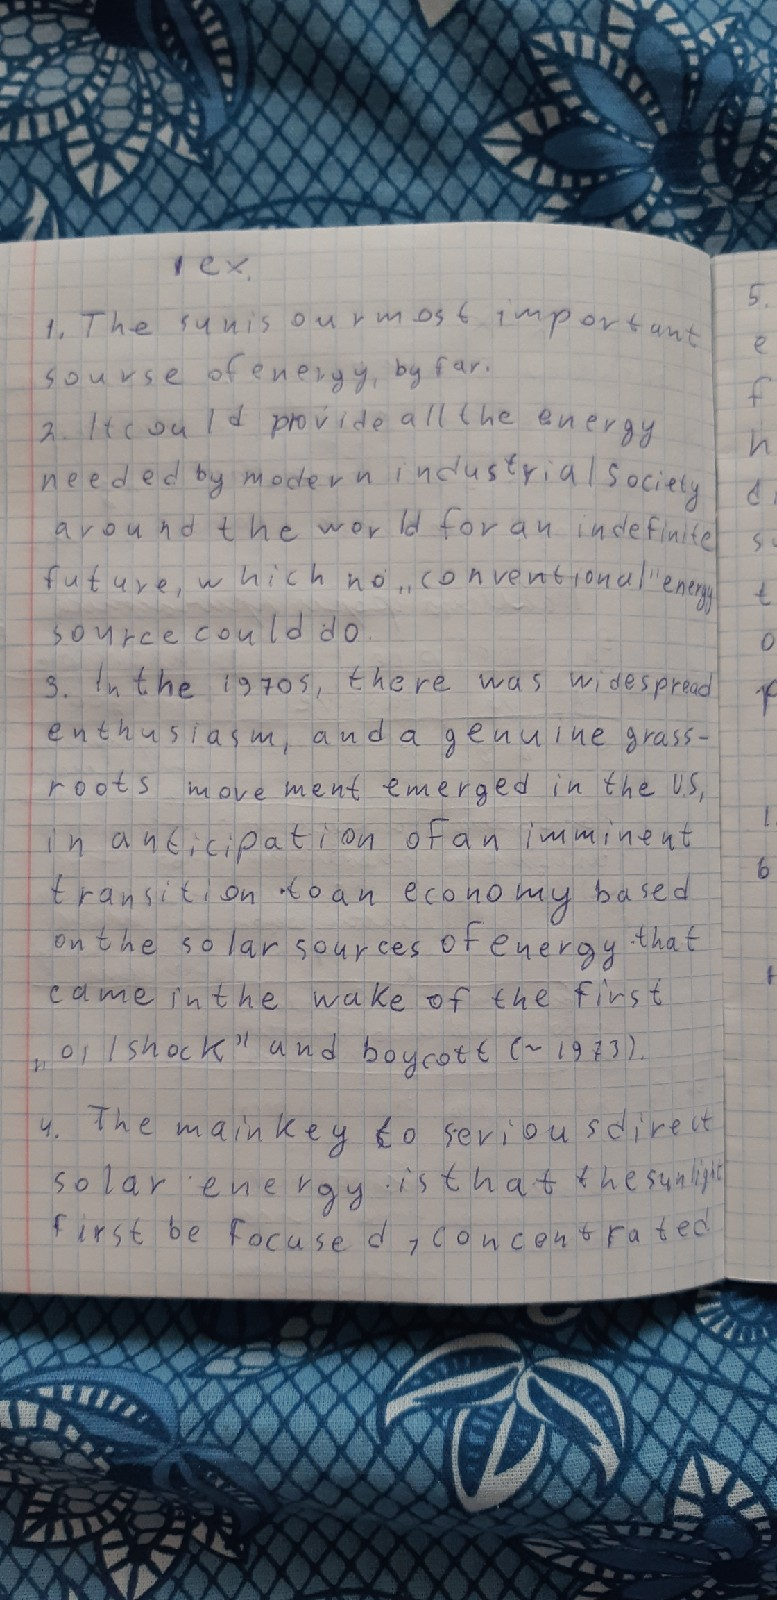 1 ex.
1. The sun is our most important
sourse of energy, by far.
2. It could provide all the energy
needed by modern industrial society
around the world for an indefinite
future, which no „conventional" energy
source could do.
3. In the 1970s, there was widespread
enthusiasm, and a genuine grass-
roots movement emerged in the U.S,
in anticipation of an imminent
transition to an economy based
on the solar sources of energy that
came in the wake of the first
„oil shock" and boycott (~ 1973).
4. The main key to serious direct
solar energy is that the sunlight
first be focused, concentrated
5.
e
f
h
d
s
t
o
1.
6
t